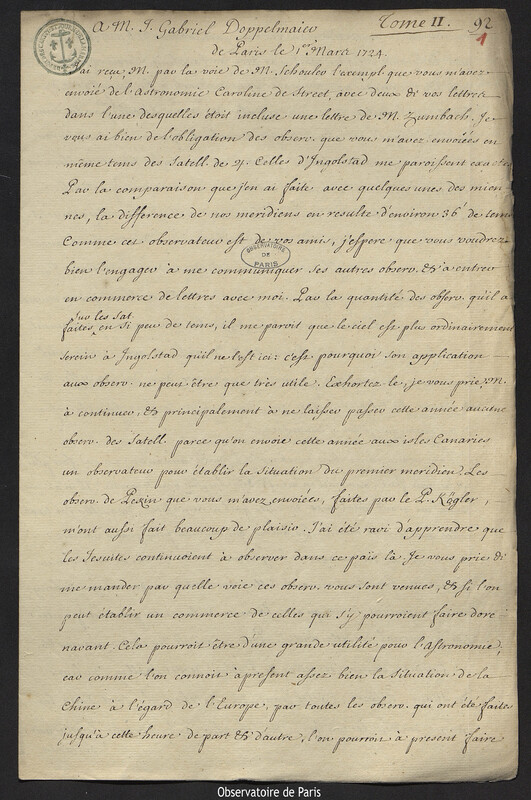 A M. J. Gabriel Doppelmaier
Tome II.
92
1
de Paris le 1er Mars 1724.
J'ai reçu, M. par la voie de M. Schouler l'exempl. que vous m'avez
envoié de l'Astronomie Caroline de Street, avec deux de vos lettres
dans l'une desquelles étoit incluse une lettre de M. Zumbach. Je
vous ai bien de l'obligation des observ. que vous m'avez envoiées en
même tems des Satell. de ♃. Celles d'Ingolstad me paroissent exactes
Par la comparaison que j'en ai faite avec quelques unes des mien-
nes, la difference de nos meridiens en resulte d'environ 36' de tems
Comme cet observateur est de vos amis, j'espere que vous voudrez
bien l'engager à me communiquer ses autres observ. & à entrer
en commerce de lettres avec moi. Par la quantité des observ. qu'il a
sur les Sat.
faites en si peu de tems, il me paroit que le ciel est plus ordinairement
serein à Ingolstad qu'il ne l'est ici: c'est pourquoi son application
aux observ. ne peut être que très utile. Exhortez le, je vous prie, M.
à continuer, & principalement à ne laisser passer cette année aucune
observ. des Satell. parce qu'on envoie cette année aux isles Canaries
un observateur pour établir la Situation du premier meridien. Les
observ. de Pezin que vous m'avez envoiées, faites par le P. Kögler,
m'ont aussi fait beaucoup de plaisir. J'ai été ravi d'apprendre que
les Jesuites continuoient à observer dans ce païs là Je vous prie de
me mander par quelle voie ces observ. vous sont venues, & si l'on
peut établir un commerce de celles qui s'y pourroient faire dore-
navant. Cela pourroit être d'une grande utilité pour l'Astronomie;
car comme l'on connoit àpresent assez bien la Situation de la
Chine à l'égard de l'Europe, par toutes les observ. qui ont été faites
jusqu'à cette heure de part & d'autre, l'on pourroit à present faire
OBSERVATOIRE
DE
PARIS
Observatoire de Paris